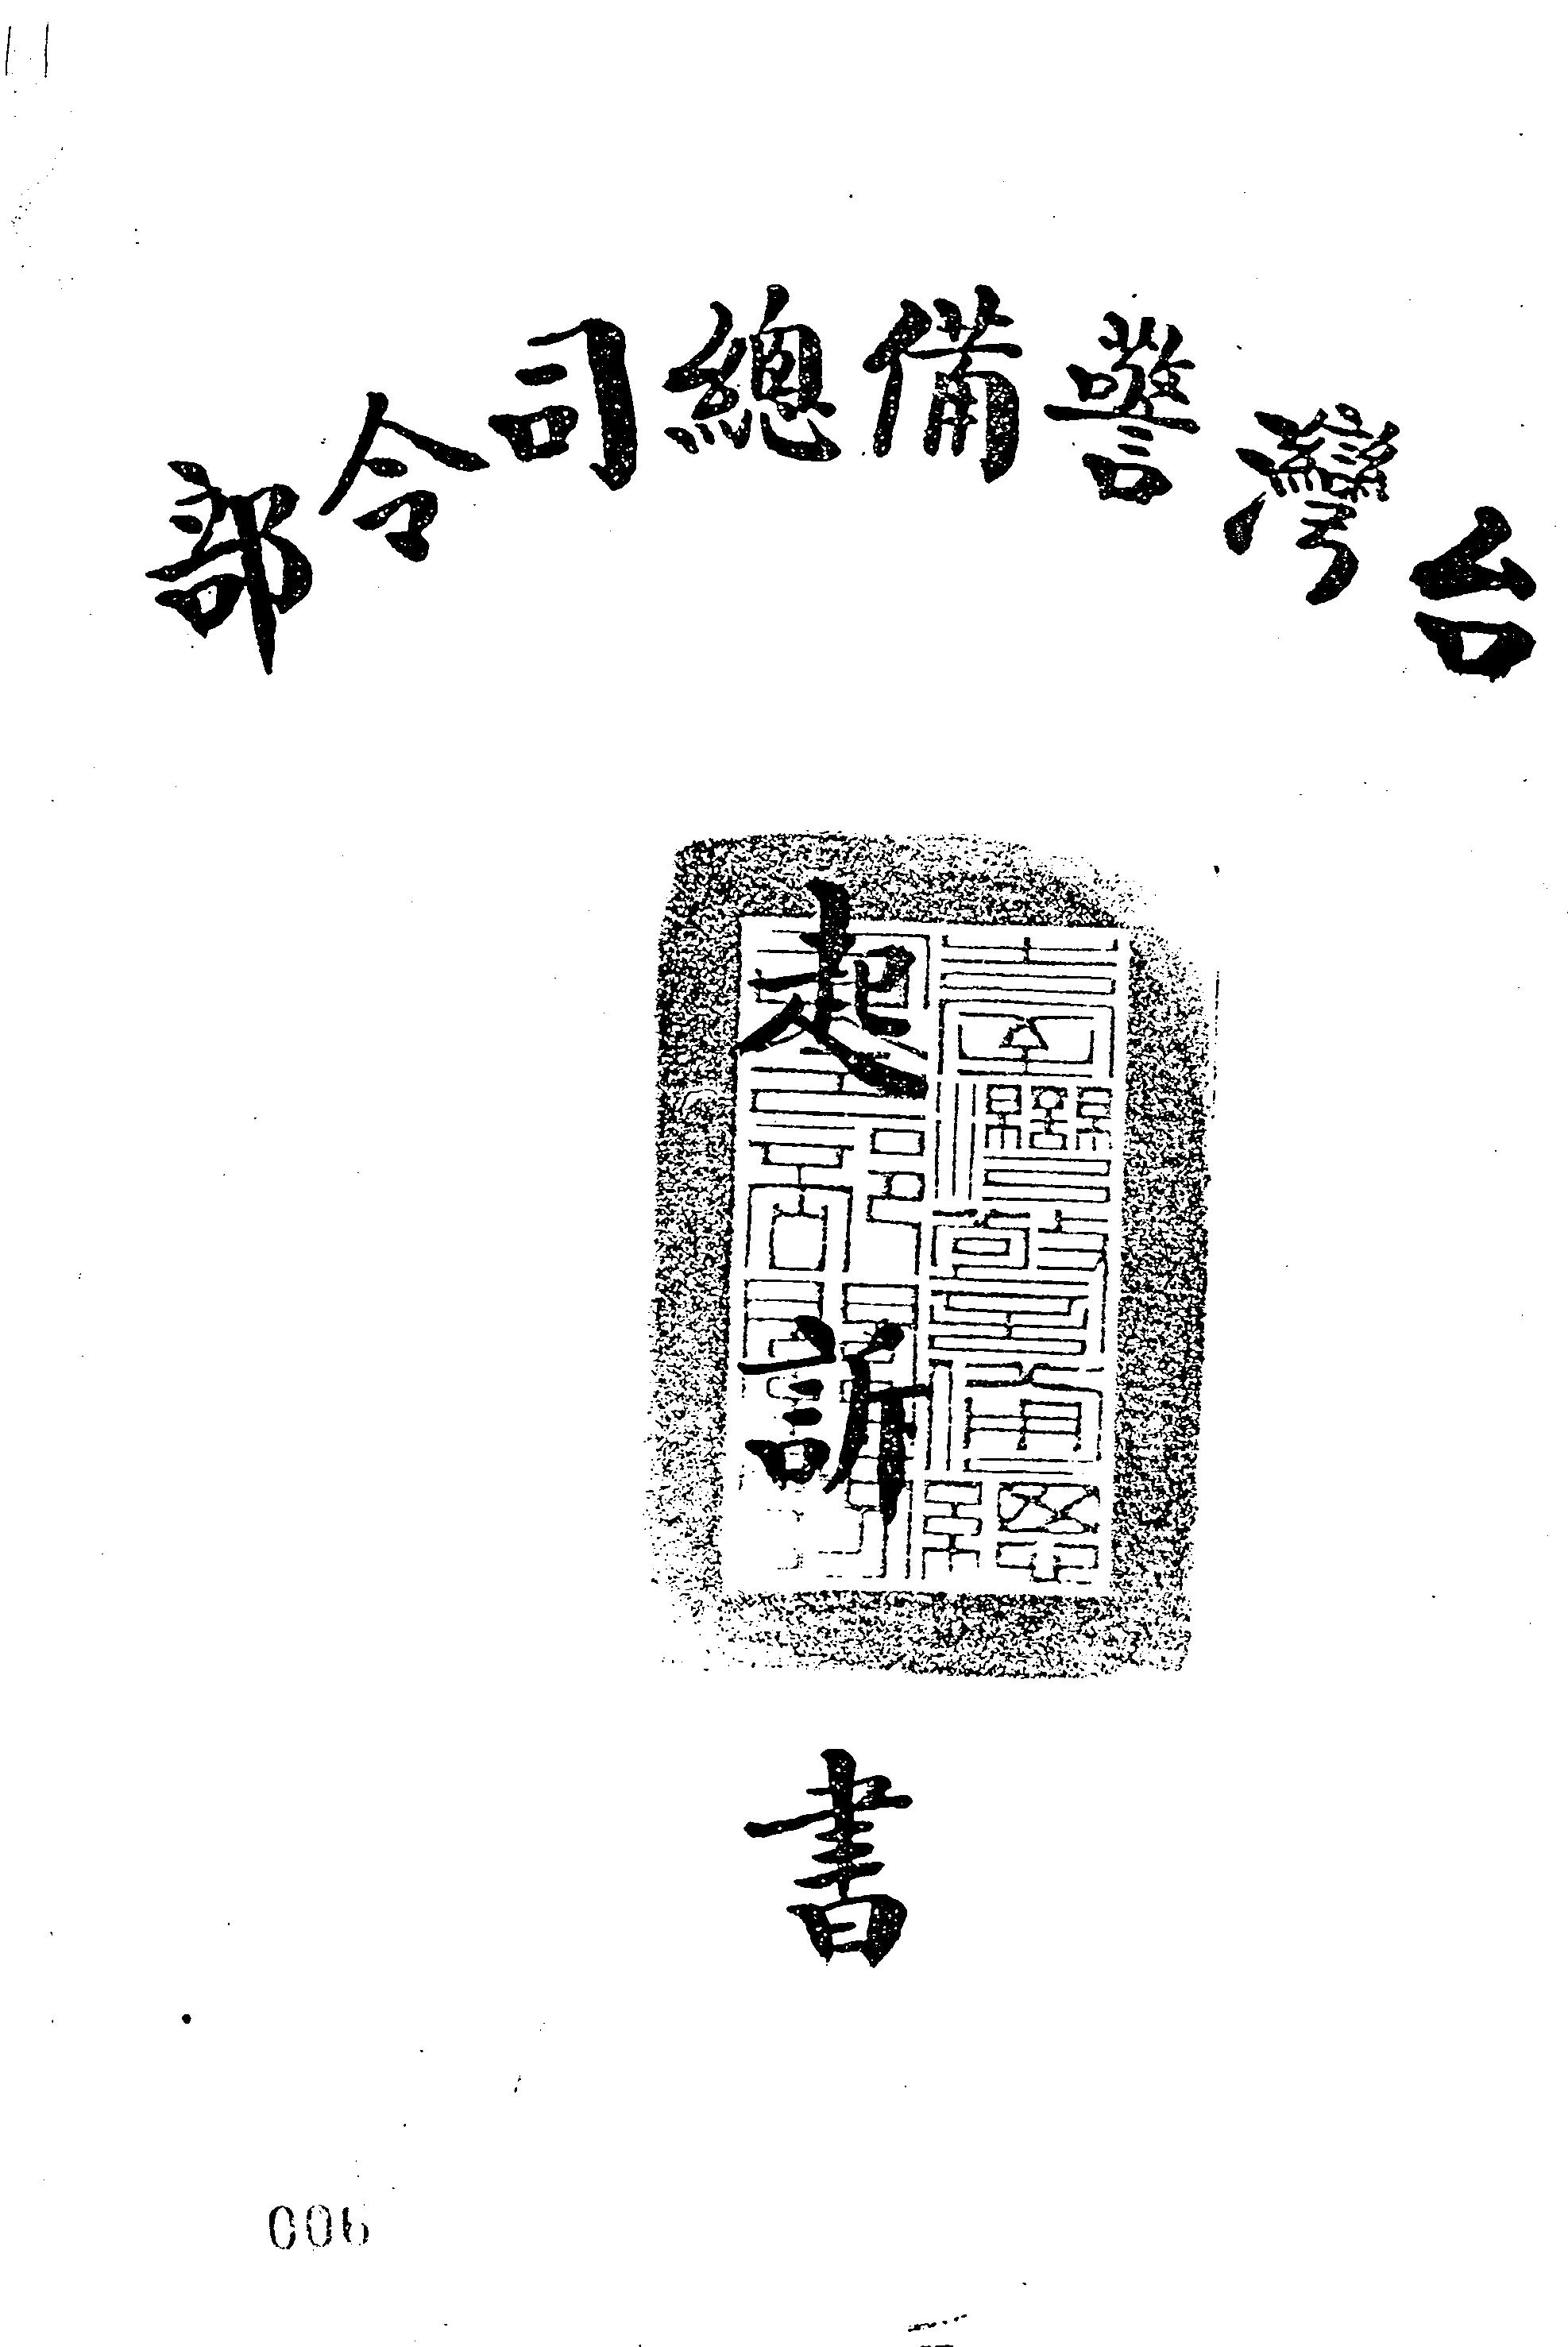 台灣警備總司令部
起訴書
006